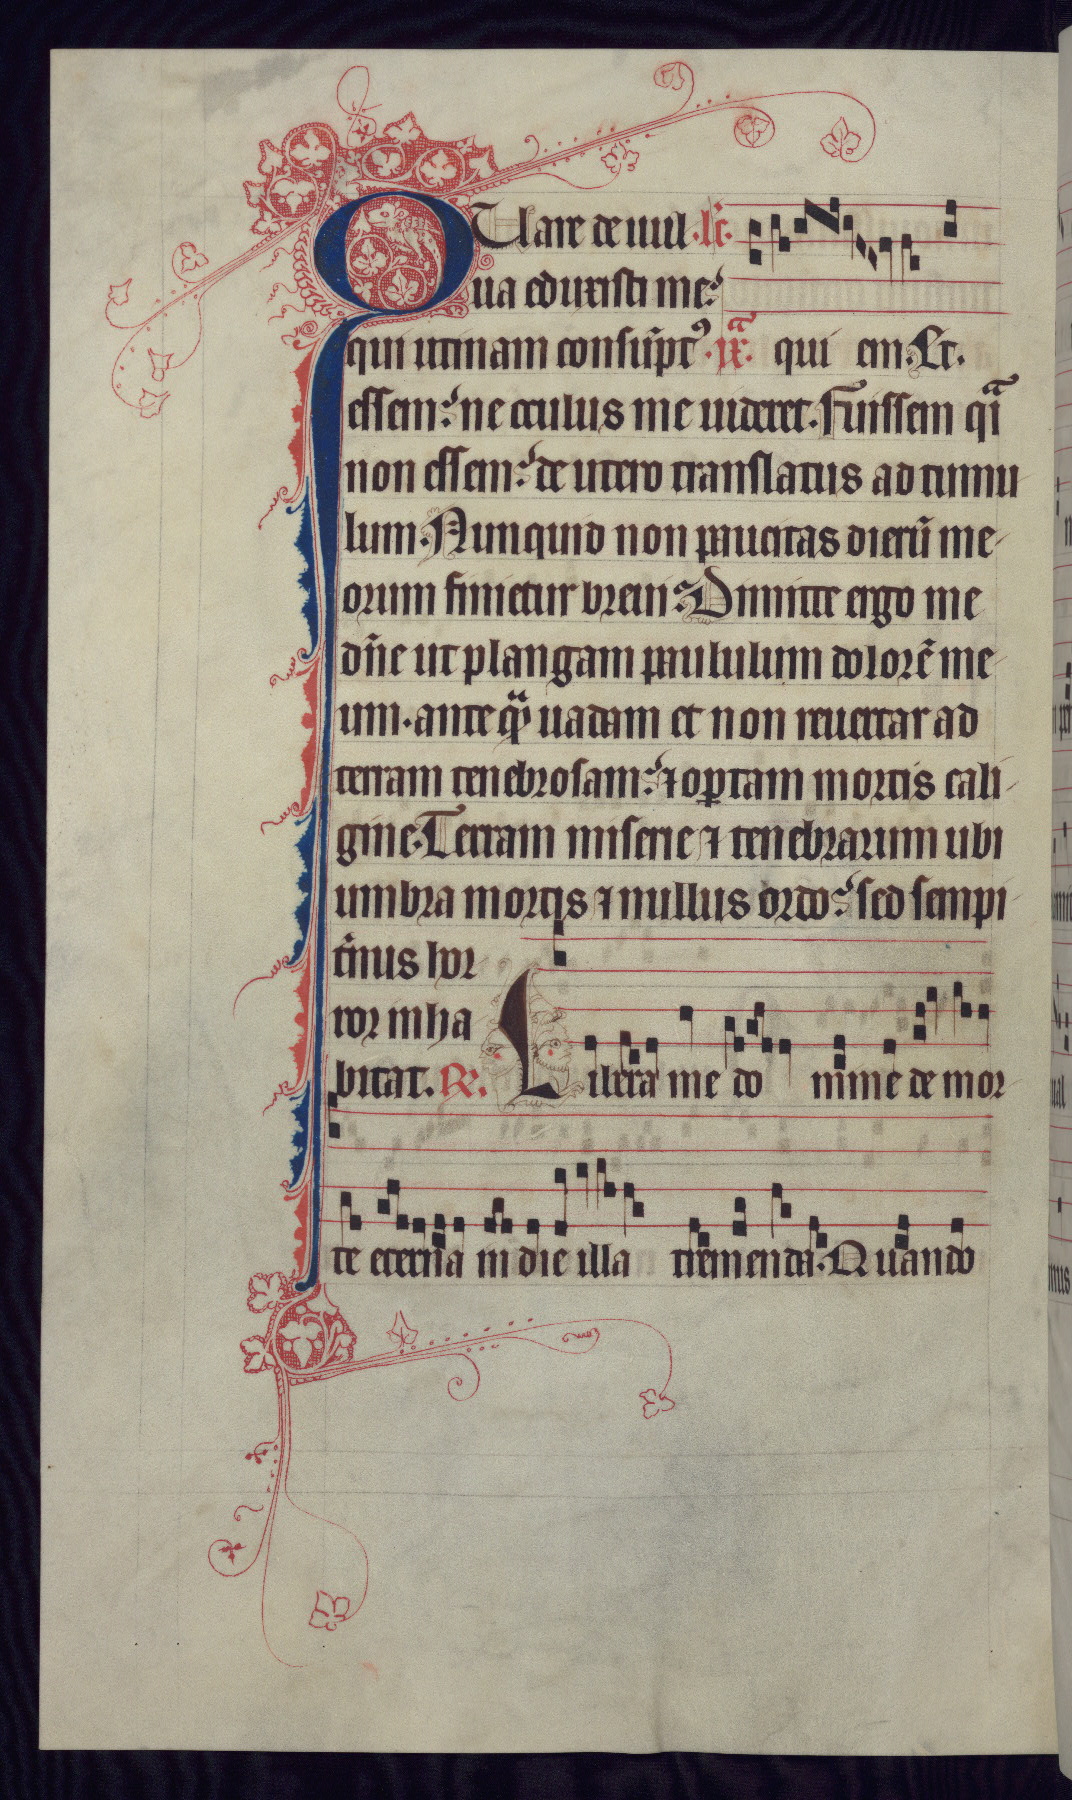 QUare de uul .lc̄.
ua eduxisti me:
qui utinam consūptꝰ .ixª. qui em. Et.
essem: ne oculus me uideret. Fuissem qͣi
non essem: de utero translatus ad tumu
lum. Nunquid non paucitas dierū me-
orum finietur breui: Dimitte ergo me
dn̄e ut plangam paululum dolorē me-
um. ante qͣ uadam et non reuertar ad
terram tenebrosam: ⁊ optam mortis cali-
gine. Terram miserie ⁊ tenebrarum ubi
umbra mortis ⁊ nullus ordo: sed sempi-
t̄nus hor
ror inha
bitat. ℞. Libera me do mine de mor-
te eterna in die illa tremenda. Quando